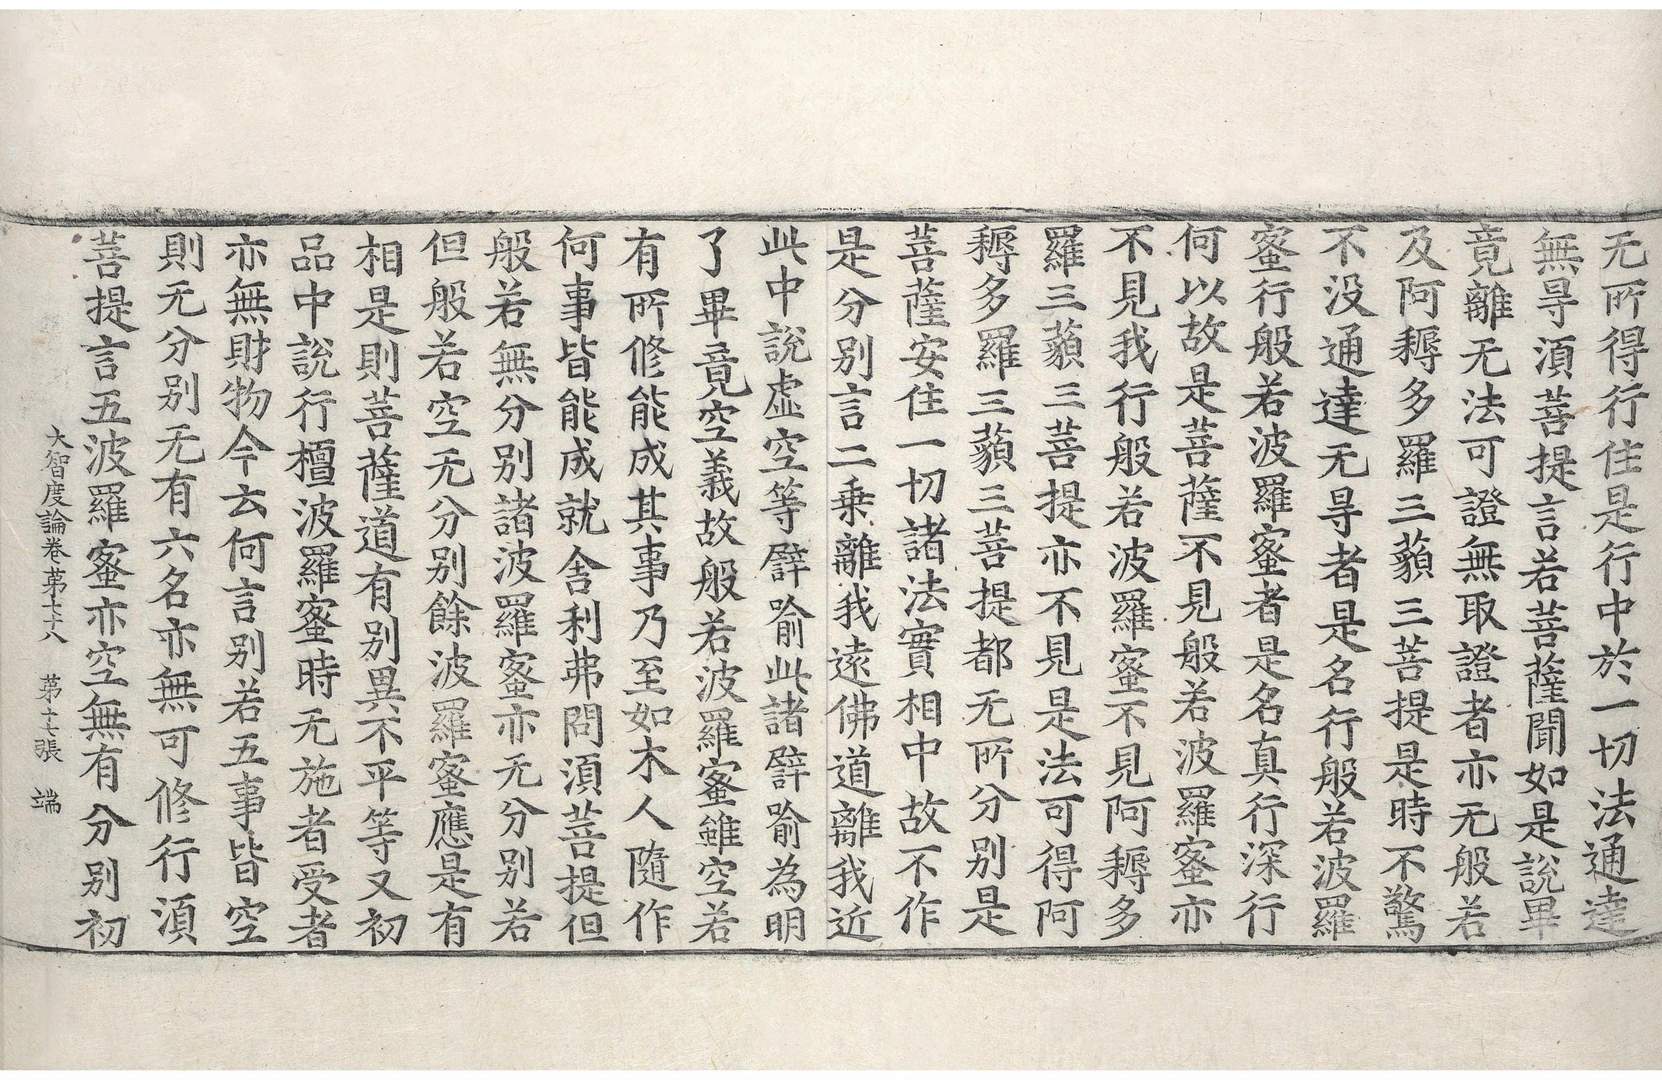 无所得行住是行中於一切法通達
無㝵湏菩提言若菩薩聞如是說畢
竟離无法可證無取證者亦无般若
及阿耨多羅三藐三菩提是時不驚
不没通達无㝵者是名行般若波羅
蜜行般若波羅蜜者是名真行深行
何以故是菩薩不見般若波羅蜜亦
不見我行般若波羅蜜不見阿耨多
羅三藐三菩提亦不見是法可得阿
耨多羅三藐三菩提都无所分别是
菩薩安住一切諸法實相中故不作
是分别言二乗離我遠佛道離我近
此中說虛空等譬喻此諸譬喻為明
了畢竟空義故般若波羅蜜雖空若
有所修能成其事乃至如木人隨作
何事皆能成就舍利弗問湏菩提但
般若無分别諸波羅蜜亦无分别若
但般若空无分别餘波羅蜜應是有
相是則菩薩道有别異不平等又初
品中說行檀波羅蜜時无施者受者
亦無財物今云何言别若五事皆空
則无分别无有六名亦無可修行湏
菩提言五波羅蜜亦空無有分别初
大智度論卷苐七十八 苐十七張 端